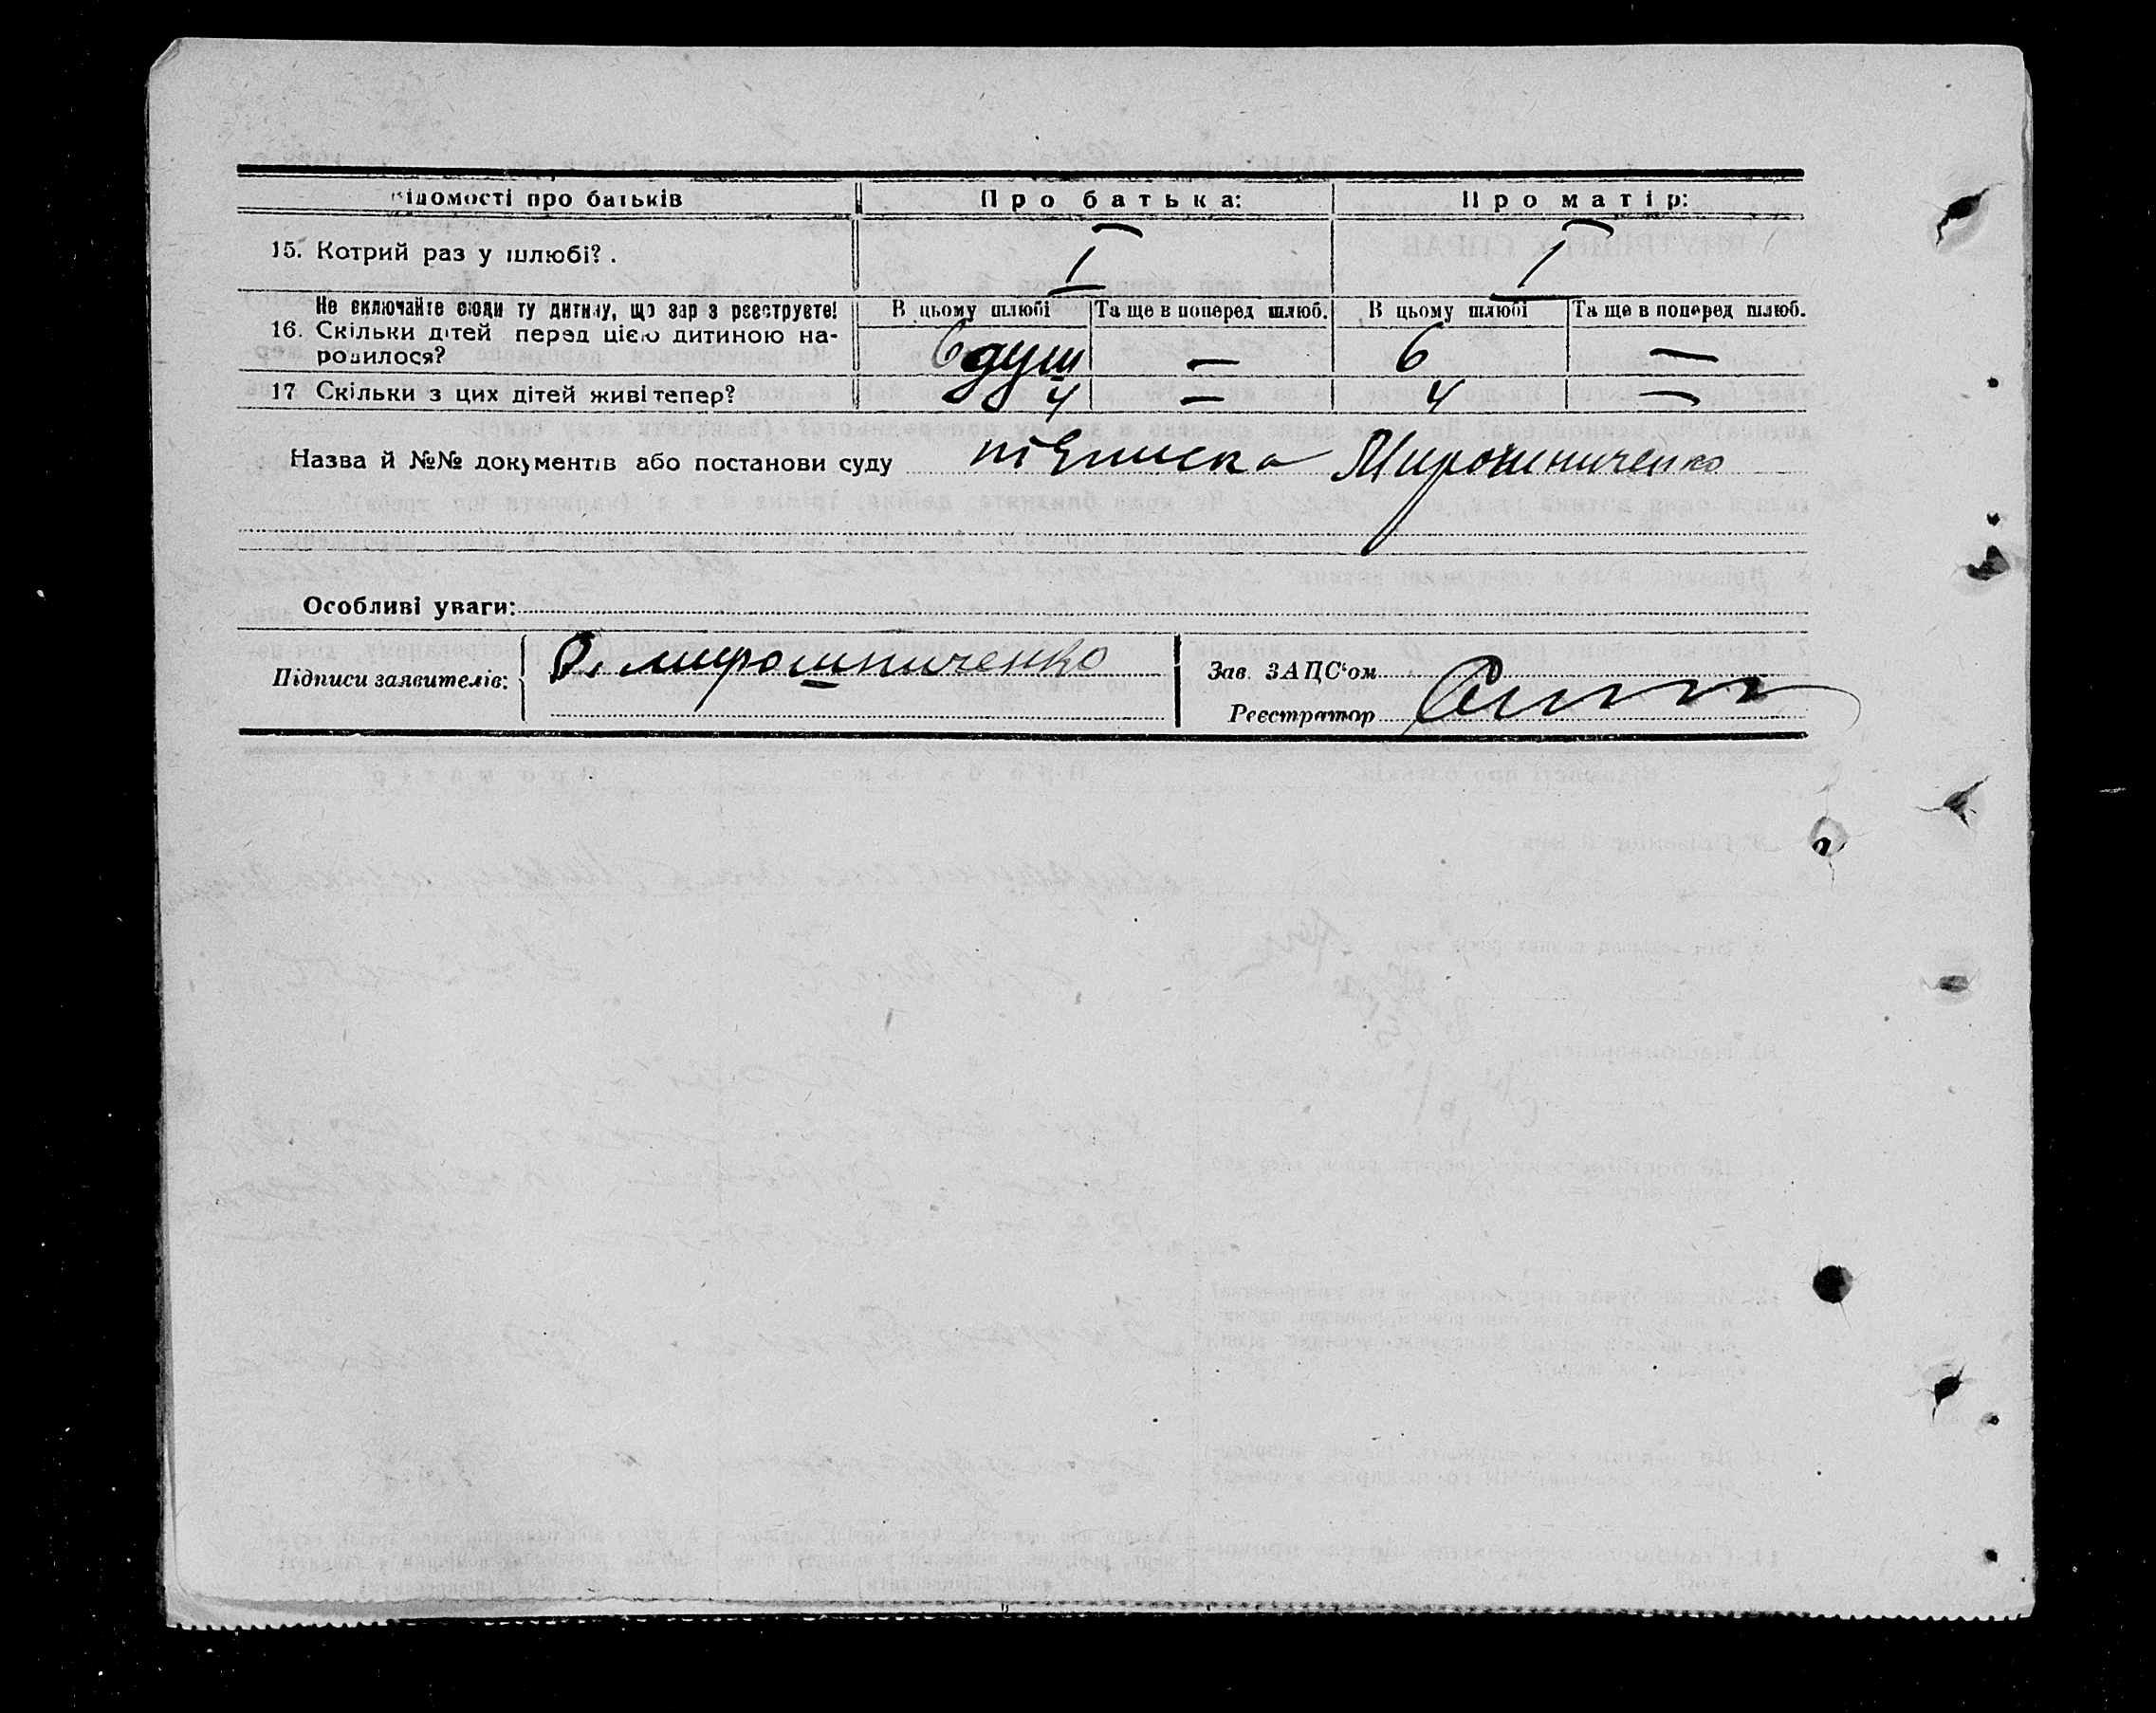 Відомості про батьків Про батька: Про матір:
15. Котрий раз у шлюбі? . I I
Не включайте сюди ту дитину, що зараз реєструєте! В цьому шлюбі Та ще в поперед шлюб. В цьому шлюбі Та ще в поперед шлюб.
16. Скільки дітей перед цією дитиною на-
родилося? 6 душ — 6 —
17 Скільки з цих дітей живі тепер? 4 — 4 —
Назва й №№ документів або постанови суду підписка Мирошниченко
Особливі уваги:
Підписи заявителів: О. мирошниченко Зав. ЗАПС‘ом
Реєстратор